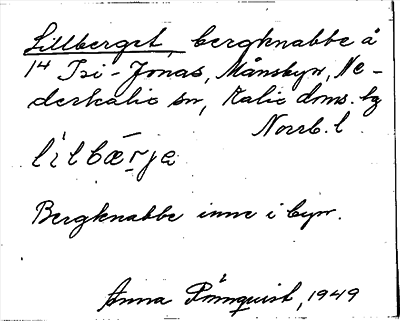 Lillberget, bergknabbe å
14 Isi-Jonas, Månsbyn, Ne-
derkalix sn, Kalix doms. bg
Norrb. l
lilbærje
Bergknabbe inne i byn.
Anna Rönnquist, 1949